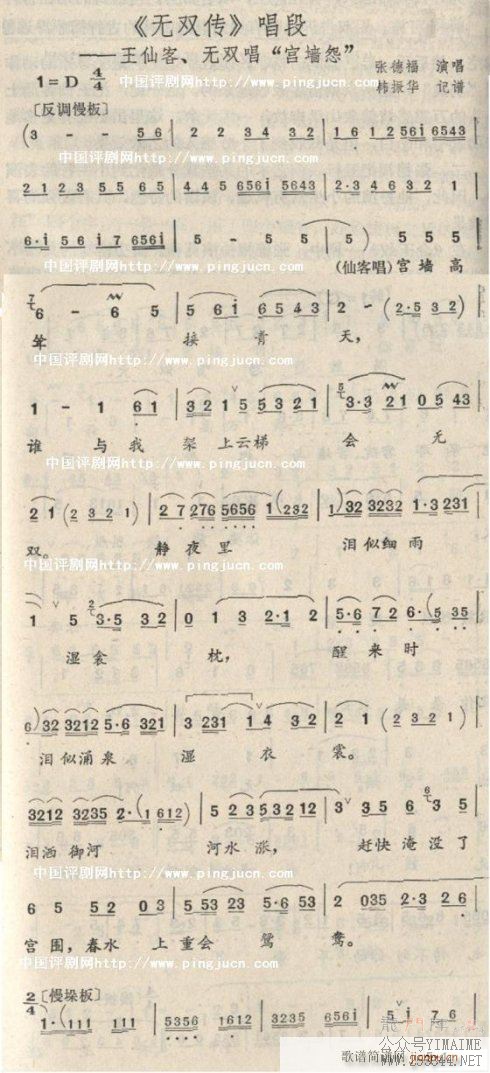 《无双传》唱段
——王仙客、无双唱“宫墙怨”
1=D 4/4
张德福 演唱
韩振华 记谱
中国评剧网http://www.pingjucn.com
〔反调慢板〕
(3 - - 5 6 | 2 2 3 4 3 2 | 1 6 1 2 5 6 i 6 5 4 3
中国评剧网http://www.pingjucn.com
2 1 2 3 5 5 6 5 | 4 4 5 6 5 6 i 5 6 4 3 | 2·3 4 6 3 2 1
6·i 5 6 i 7 6 5 6 i | 5 - 5 5 | 5 5) 5 5 5
中国评剧网http://www.pingjucn.com
(仙客唱)宫墙高
6 - 6 5 | 5 6 i 6 5 4 3 | 2 - (2·5 3 2)
耸 接 青 天,
中国评剧网http://www.pingjucn.com
1 - 1 6 1 | 3 2 1 5 5 3 2 1 | 3·3 2 1 0 5 4 3
谁 与 我 架 上 云 梯 会 无
中国评剧网http://www.pingjucn.com
2 1 (2 3 2 1) | 2 7 2 7 6 5 6 5 6 1 (2 3 2 | 1) 3 2 3 2 3 2 1·3 2 3 1
双。 静 夜 里 泪 似 细 雨
中国评剧网http://www.pingjucn.com
1 5 3·5 3 2 | 0 1 3 2·1 2 | 5·6 7 2 6·(5 3 5
湿 衾 枕, 醒 来 时
6) 3 2 3 2 1 2 5·6 3 2 1 | 3 2 3 1 1 4 3 2 | 2 1 (2 3 2 1)
泪 似 涌 泉 湿 衣 裳。
3 2 1 2 3 2 3 5 2·(1 6 1 2) | 5 2 3 5 3 2 3 2 | 3 3 5 6 3 5
泪 洒 御 河 河 水 涨, 赶 快 淹 没 了
中国评剧网http://www.pingjucn.com
6 5 5 2 0 3 | 5 5 3 5·3 2 | 2 0 3 5 2·3 2 6
宫 围,春 水 上 重 会 鸳 鸯。
中国评剧网http://www.pingjucn.com
2/4〔慢垛板〕
1·(1 1 1 1 1 1 | 5 3 5 6 1 6 1 2 | 3 2 3 5 6 5 6 i | 5 i 7 6
歌谱简谱网 jianpu.cn
公众号YIMAIME